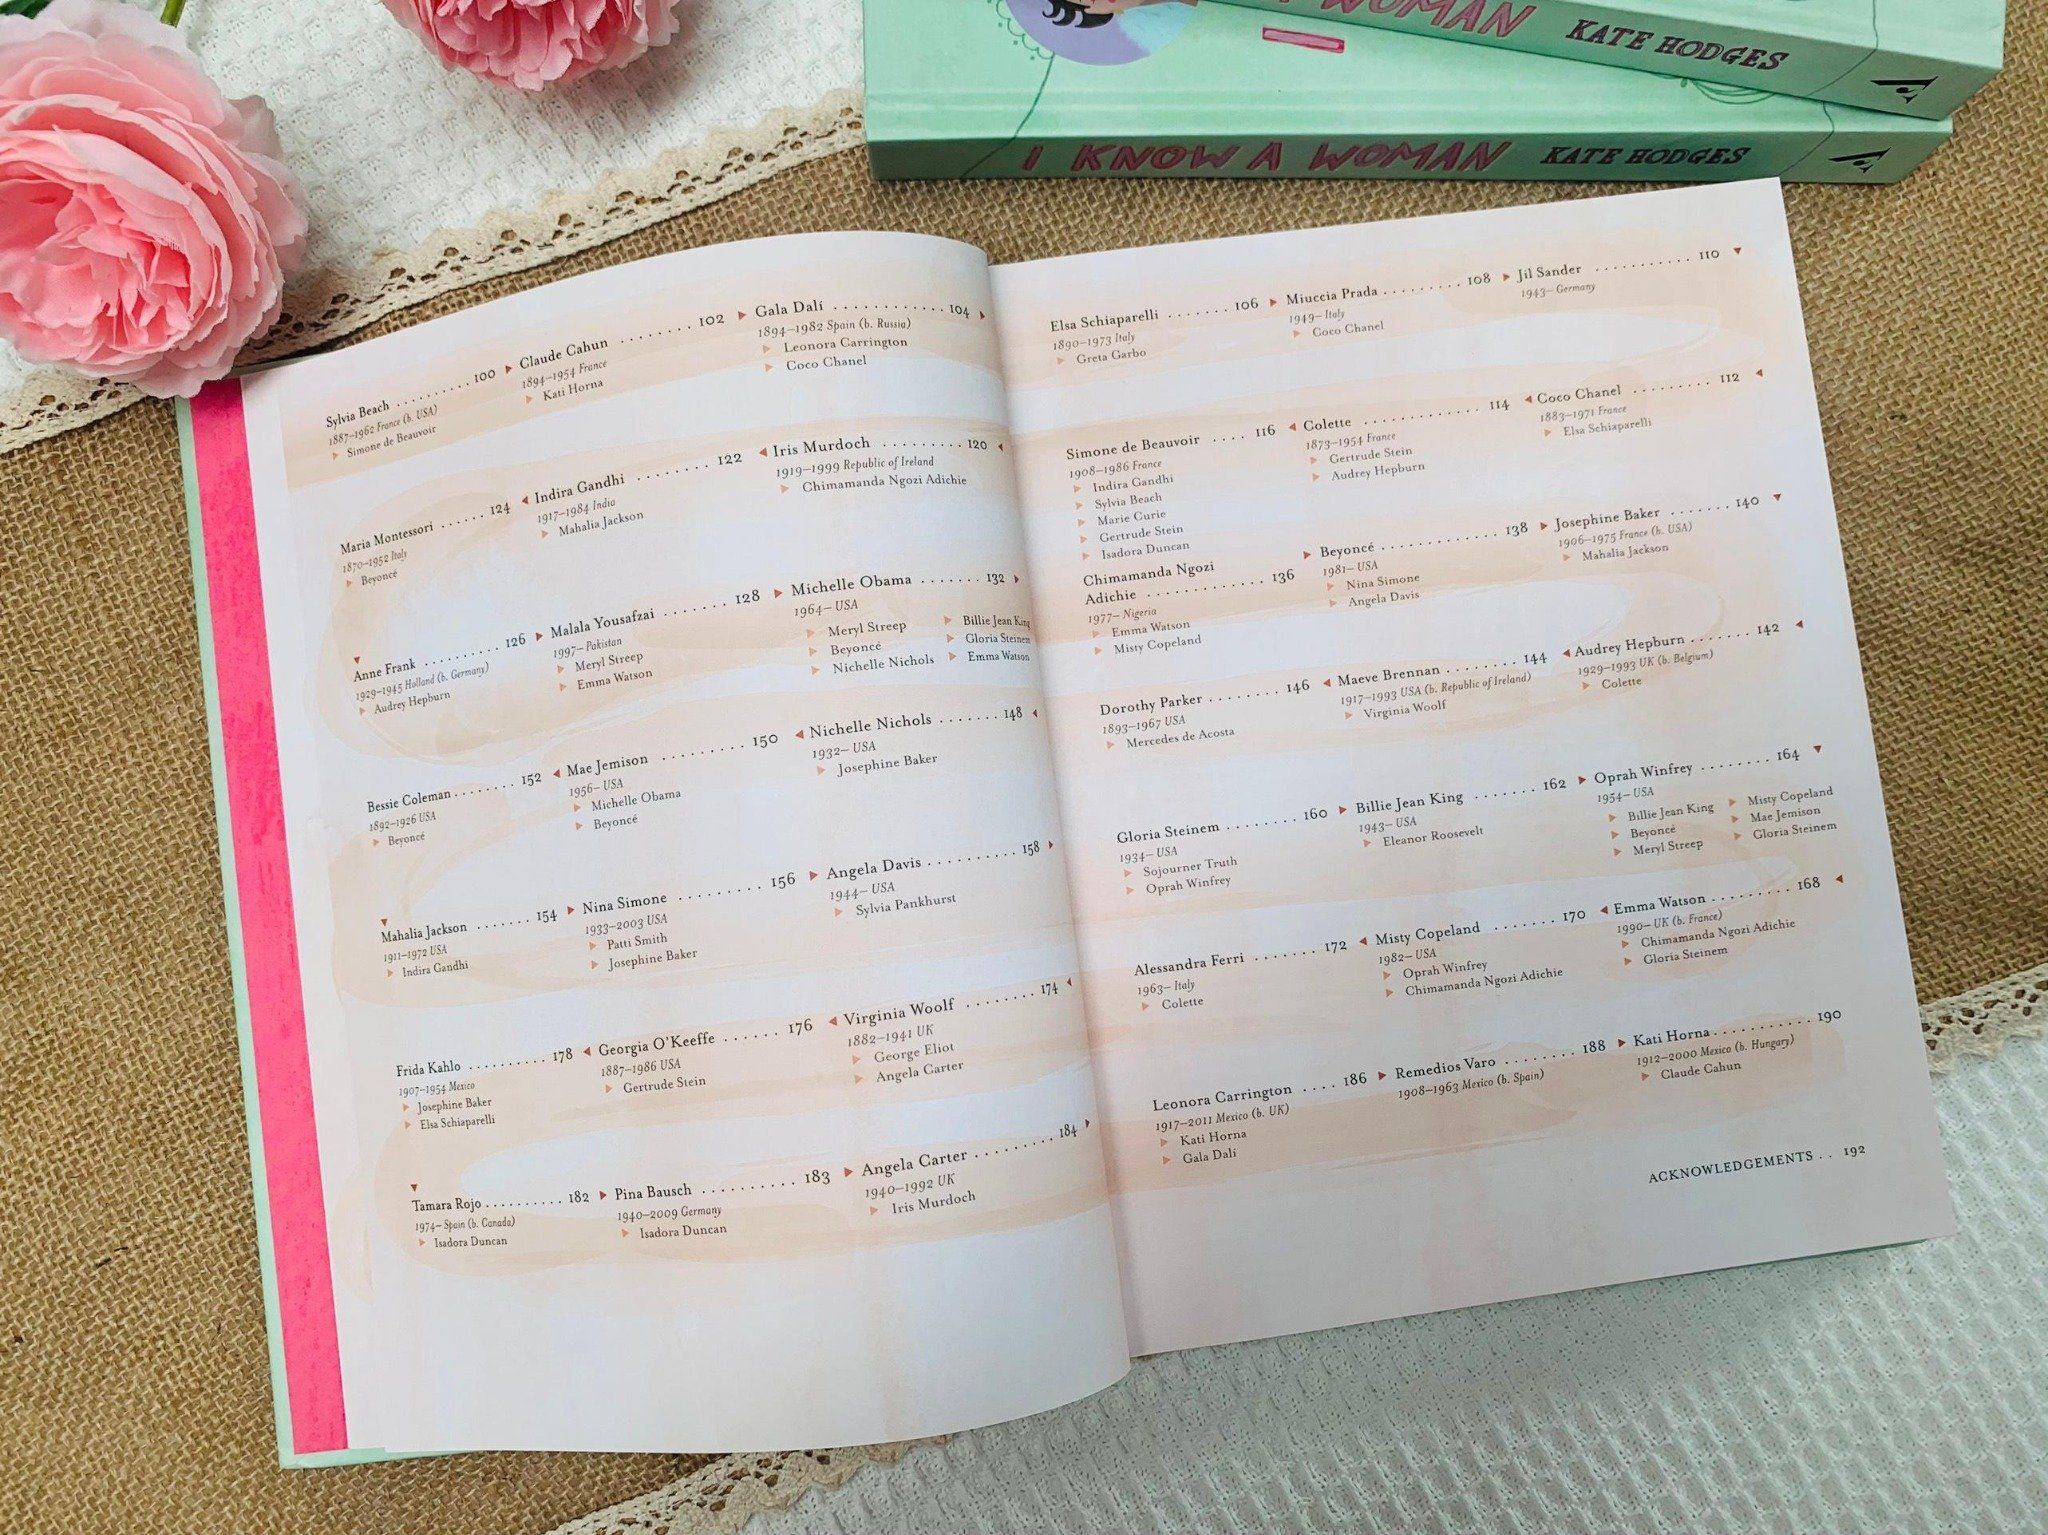 WOMAN KATE HODGES
I KNOW A WOMAN KATE HODGES
Sylvia Beach ......... 100
1887–1962 France (b. USA)
Simone de Beauvoir
Claude Cahun ....... 102
1894–1954 France
Kati Horna
Gala Dalí .......... 104
1894–1982 Spain (b. Russia)
Leonora Carrington
Coco Chanel
Maria Montessori ...... 124
1870–1952 Italy
Beyoncé
Indira Gandhi ....... 122
1917–1984 India
Mahalia Jackson
Iris Murdoch ........ 120
1919–1999 Republic of Ireland
Chimamanda Ngozi Adichie
Anne Frank .......... 126
1929–1945 Holland (b. Germany)
Audrey Hepburn
Malala Yousafzai ....... 128
1997– Pakistan
Meryl Streep
Emma Watson
Michelle Obama ....... 132
1964– USA
Meryl Streep
Beyoncé
Nichelle Nichols
Billie Jean King
Gloria Steinem
Emma Watson
Bessie Coleman ........ 152
1892–1926 USA
Beyoncé
Mae Jemison ......... 150
1956– USA
Michelle Obama
Beyoncé
Nichelle Nichols ....... 148
1932– USA
Josephine Baker
Mahalia Jackson ....... 154
1911–1972 USA
Indira Gandhi
Nina Simone ........ 156
1933–2003 USA
Patti Smith
Josephine Baker
Angela Davis .......... 158
1944– USA
Sylvia Pankhurst
Frida Kahlo .......... 178
1907–1954 Mexico
Josephine Baker
Elsa Schiaparelli
Georgia O'Keeffe ...... 176
1887–1986 USA
Gertrude Stein
Virginia Woolf ........ 174
1882–1941 UK
George Eliot
Angela Carter
Tamara Rojo .......... 182
1974– Spain (b. Canada)
Isadora Duncan
Pina Bausch .......... 183
1940–2009 Germany
Isadora Duncan
Angela Carter ......... 184
1940–1992 UK
Iris Murdoch
Elsa Schiaparelli ....... 106
1890–1973 Italy
Greta Garbo
Miuccia Prada ......... 108
1949– Italy
Coco Chanel
Jil Sander ........... 110
1943– Germany
Simone de Beauvoir .... 116
1908–1986 France
Indira Gandhi
Sylvia Beach
Marie Curie
Gertrude Stein
Isadora Duncan
Colette ............ 114
1873–1954 France
Gertrude Stein
Audrey Hepburn
Coco Chanel ......... 112
1883–1971 France
Elsa Schiaparelli
Chimamanda Ngozi
Adichie ............ 136
1977– Nigeria
Emma Watson
Misty Copeland
Beyoncé ............. 138
1981– USA
Nina Simone
Angela Davis
Josephine Baker ....... 140
1906–1975 France (b. USA)
Mahalia Jackson
Dorothy Parker ........ 146
1893–1967 USA
Mercedes de Acosta
Maeve Brennan ........ 144
1917–1993 USA (b. Republic of Ireland)
Virginia Woolf
Audrey Hepburn ....... 142
1929–1993 UK (b. Belgium)
Colette
Gloria Steinem ........ 160
1934– USA
Sojourner Truth
Oprah Winfrey
Billie Jean King ....... 162
1943– USA
Eleanor Roosevelt
Oprah Winfrey ........ 164
1954– USA
Billie Jean King
Beyoncé
Meryl Streep
Misty Copeland
Mae Jemison
Gloria Steinem
Alessandra Ferri ....... 172
1963– Italy
Colette
Misty Copeland ....... 170
1982– USA
Oprah Winfrey
Chimamanda Ngozi Adichie
Emma Watson ......... 168
1990– UK (b. France)
Chimamanda Ngozi Adichie
Gloria Steinem
Leonora Carrington .... 186
1917–2011 Mexico (b. UK)
Kati Horna
Gala Dalí
Remedios Varo ........ 188
1908–1963 Mexico (b. Spain)
Kati Horna ........... 190
1912–2000 Mexico (b. Hungary)
Claude Cahun
ACKNOWLEDGEMENTS .. 192